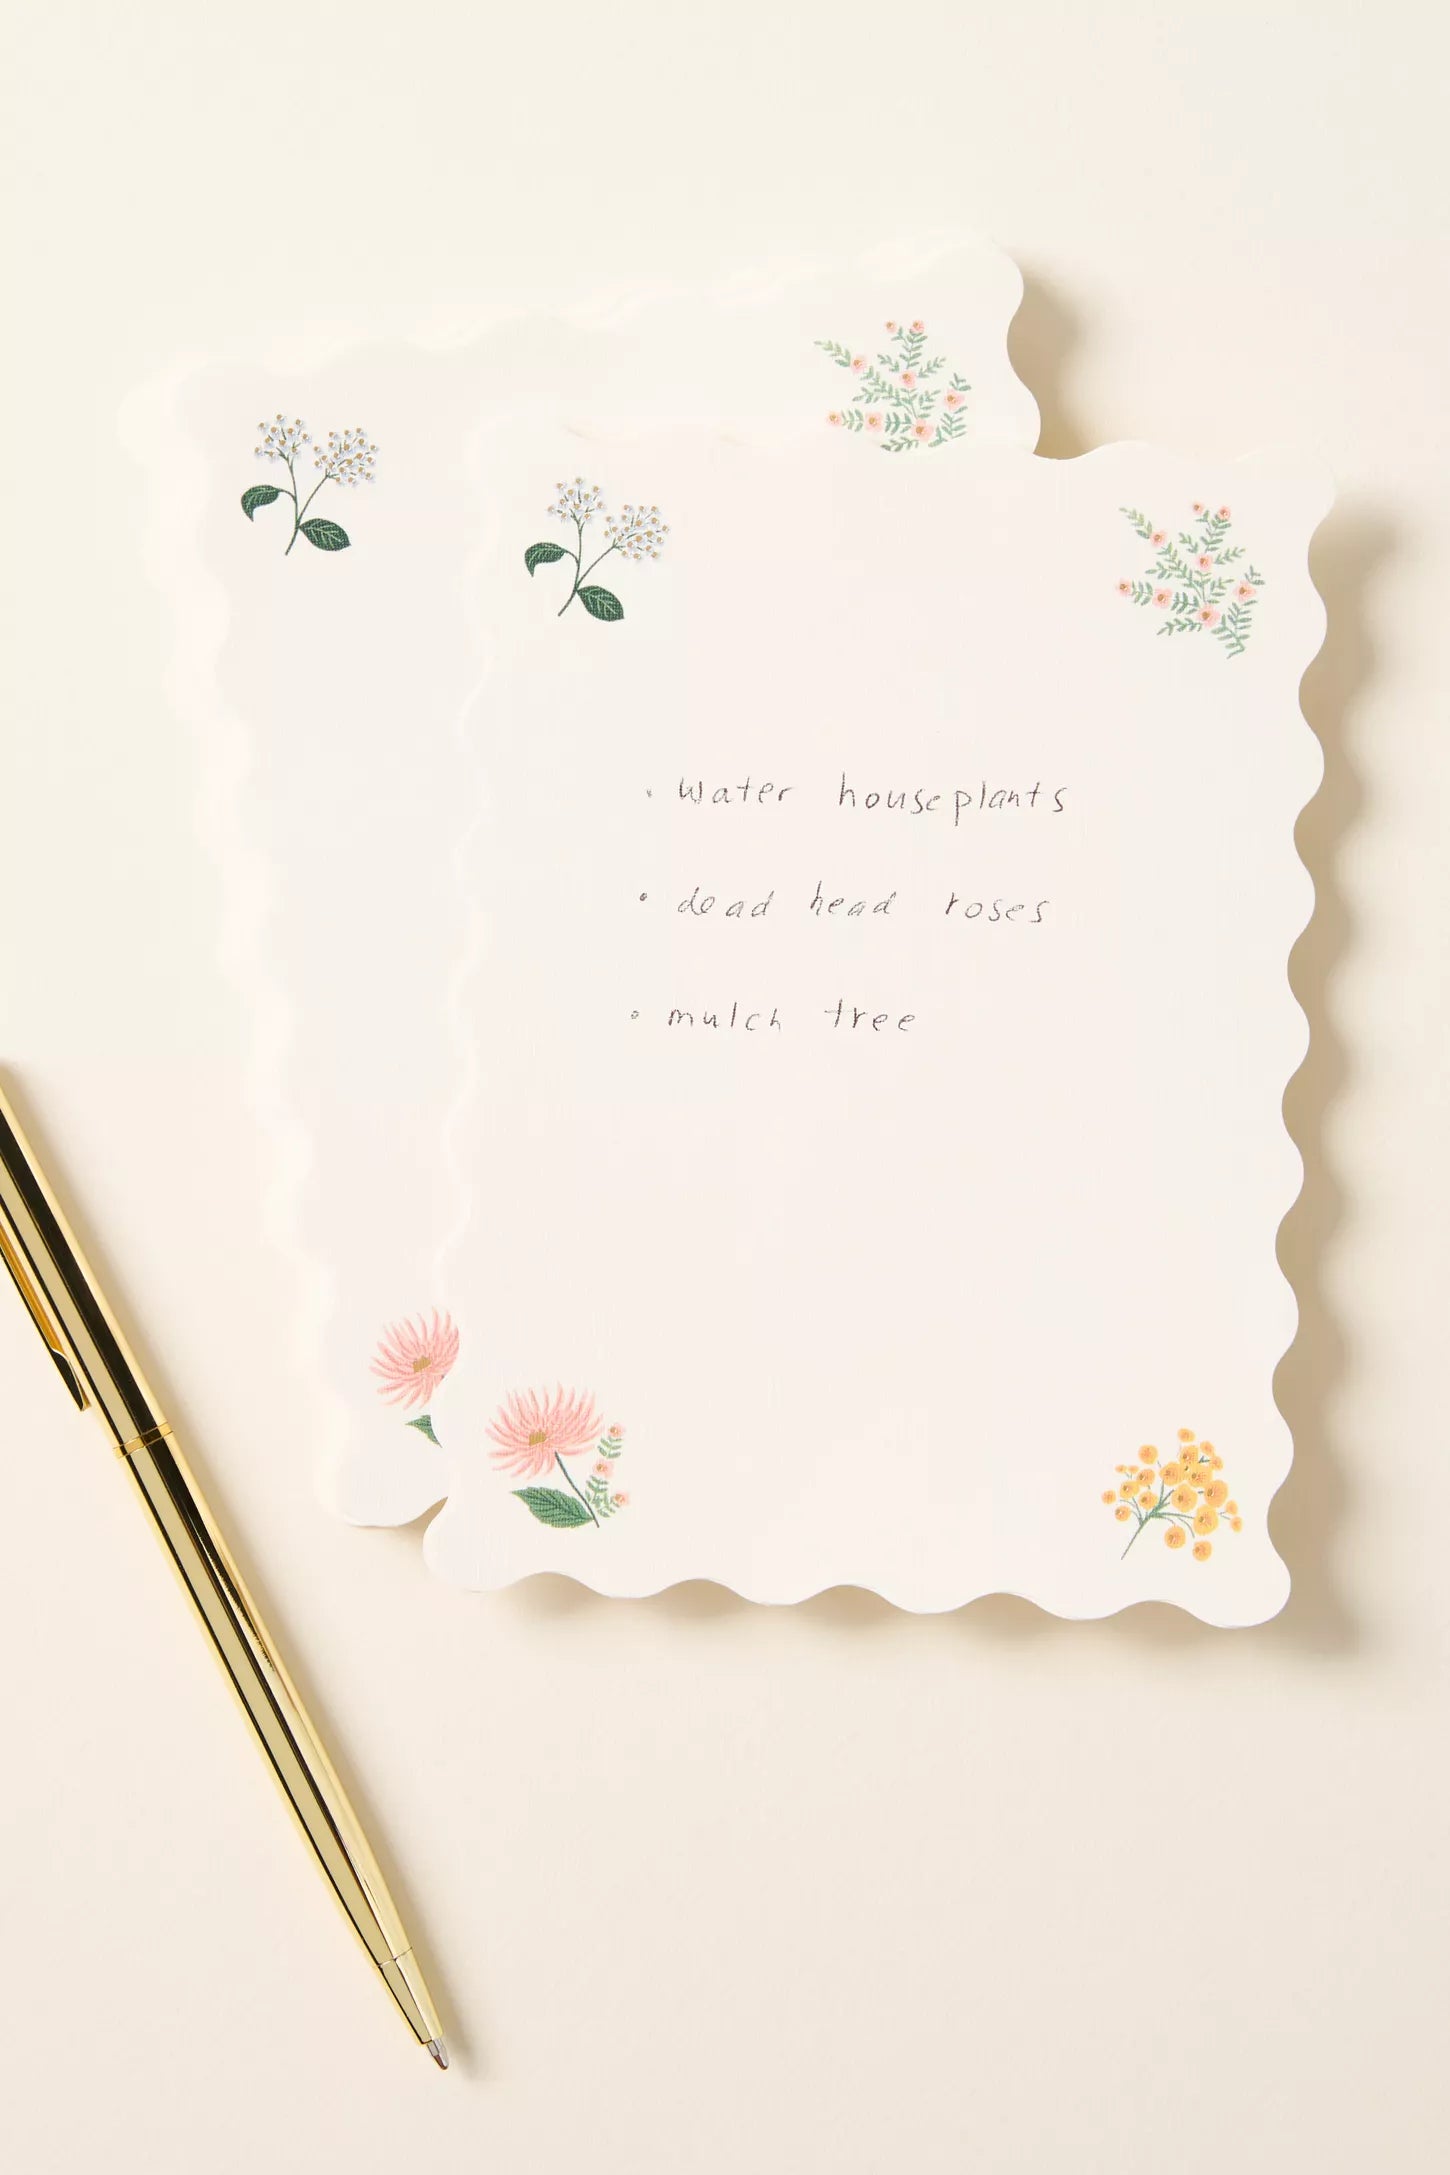 • water houseplants
• dead head roses
• mulch tree